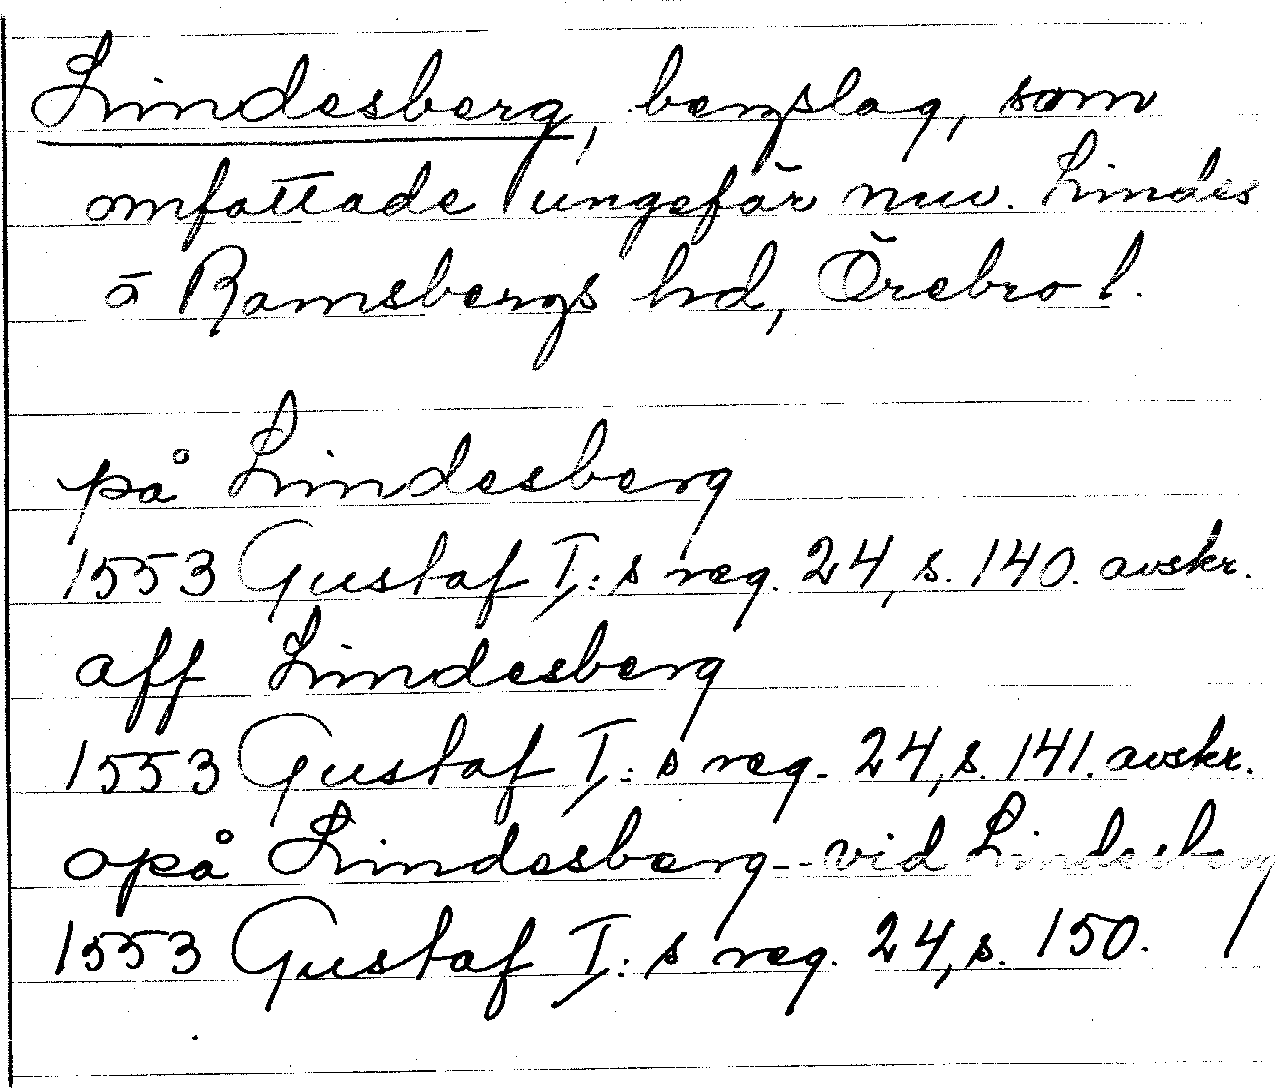 Lindesberg, bergslag, som
omfattade ungefär nuv. Lindes
o Ramsbergs hd, Örebro l.
på Lindesberg
1553 Gustaf I:s reg. 24, s. 140. avskr.
aff Lindesberg
1553 Gustaf I:s reg. 24, s. 141. avskr.
opå Lindesberg - - vid Lindesberg
1553 Gustaf I:s reg. 24, s. 150.